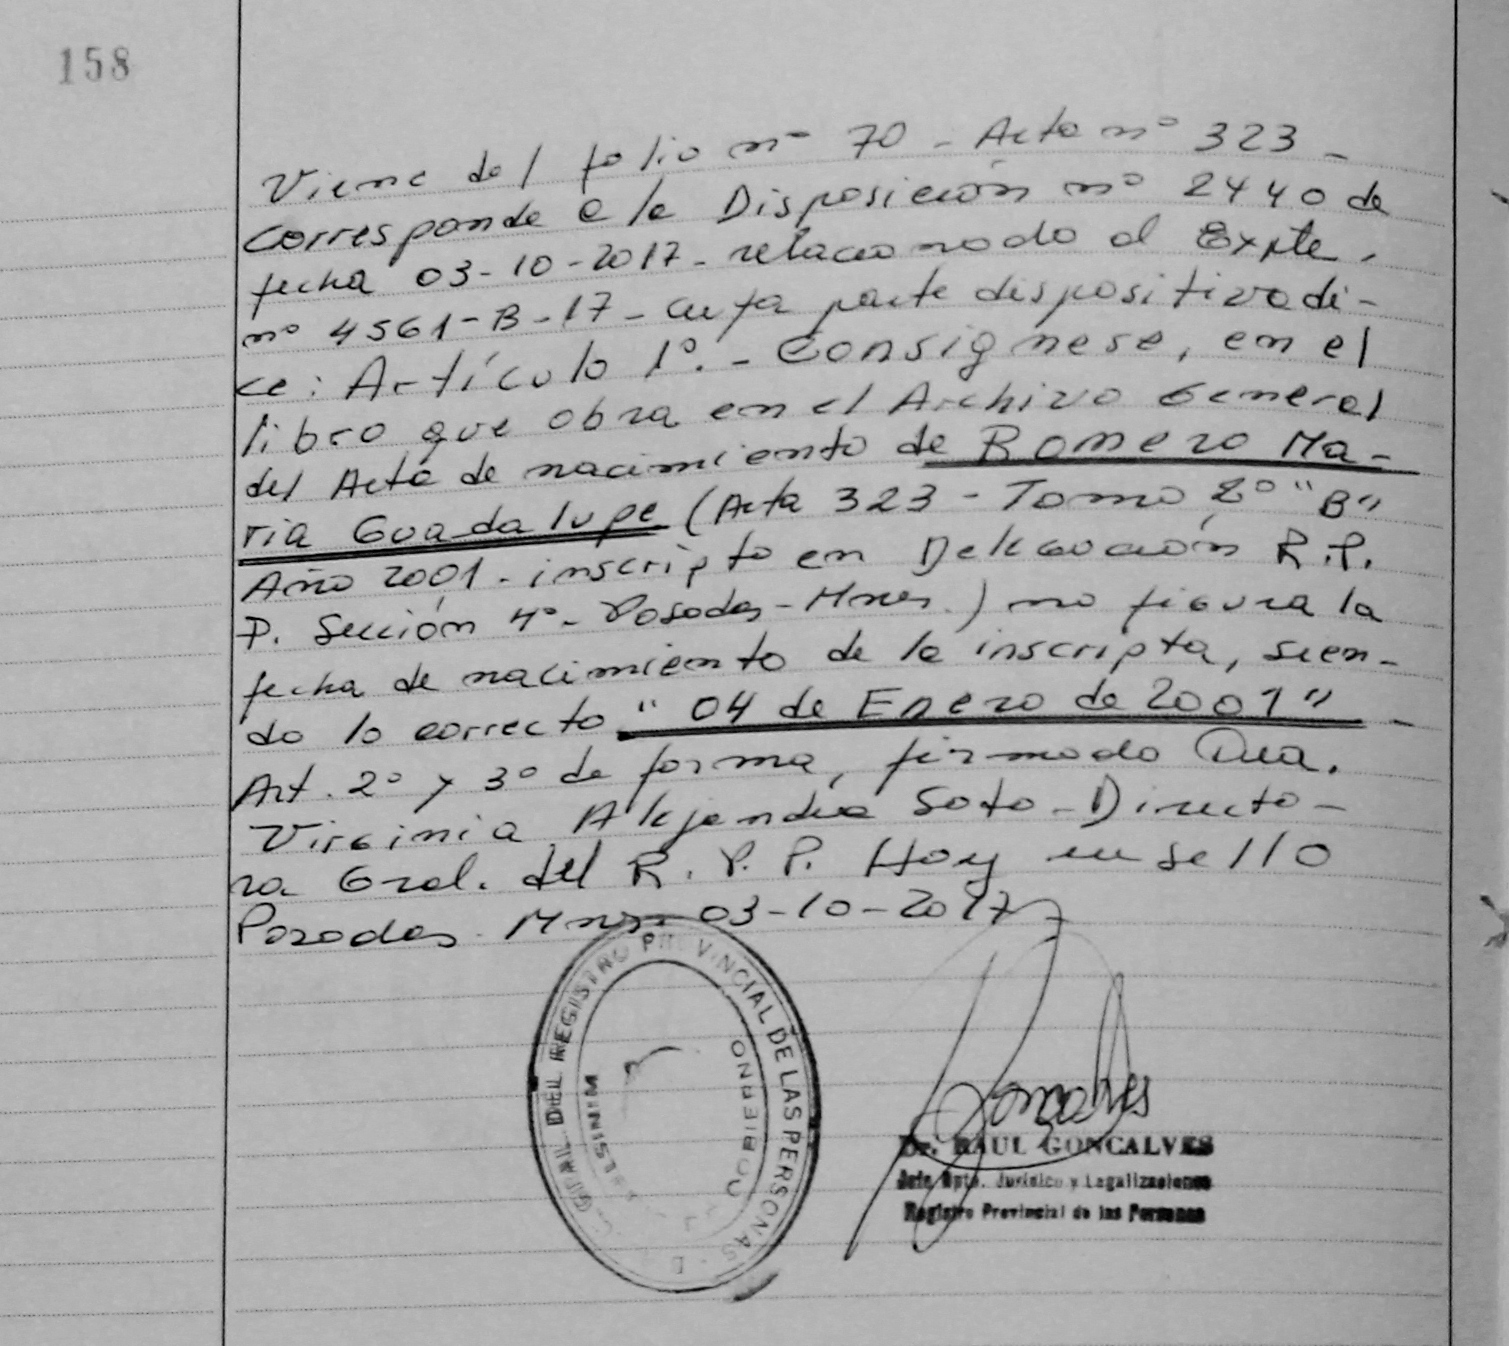 158
Viene del folio nº 70 - Acta nº 323 -
Corresponde a la Disposición nº 2440 de
fecha 03-10-2017 - relacionado al Expte.
nº 4561-B-17 - cuya parte dispositiva di-
ce: Artículo 1º. - Consignese, en el
libro que obra en el Archivo General
del Acta de nacimiento de Romero Ma-
ria Guadalupe (Acta 323 - Tomo 2º "B"
Año 2001 - inscripto en Delegación R.P.
P. Sección 4º - Posadas - Mnes.) no figura la
fecha de nacimiento de la inscripta, sien-
do lo correcto "04 de Enero de 2001" -
Art. 2º y 3º de forma, firmado Dra.
Virginia Alejandra Soto - Directo-
ra Gral. del R.P.P. Hoy un sello
Posadas Mnes. 03-10-2017
GRAL. DEL REGISTRO PROVINCIAL DE LAS PERSONAS
GOBIERNO
Goncalves
Dr. RAUL GONCALVES
Jefe Dpto. Juridico y Legalizaciones
Registro Provincial de las Personas